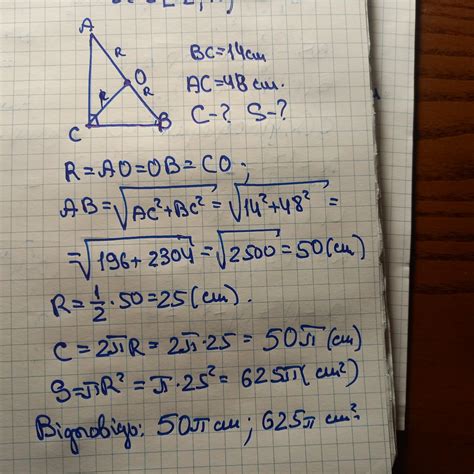 A
R
O
BC=14cm
R
R
AC=48 cm.
C
B
C-? S-?
R=AO=OB=CO;
AB=√AC²+BC²=√14²+48²=
=√196+2304=√2500=50(cm)
R=1/2·50=25(cm).
C=2πR=2π·25=50π(cm)
S=πR²=π·25²=625π(cm²)
Відповідь: 50π cm; 625π cm²